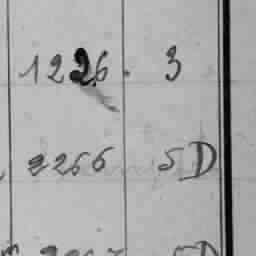 1226. 3
2266 5D